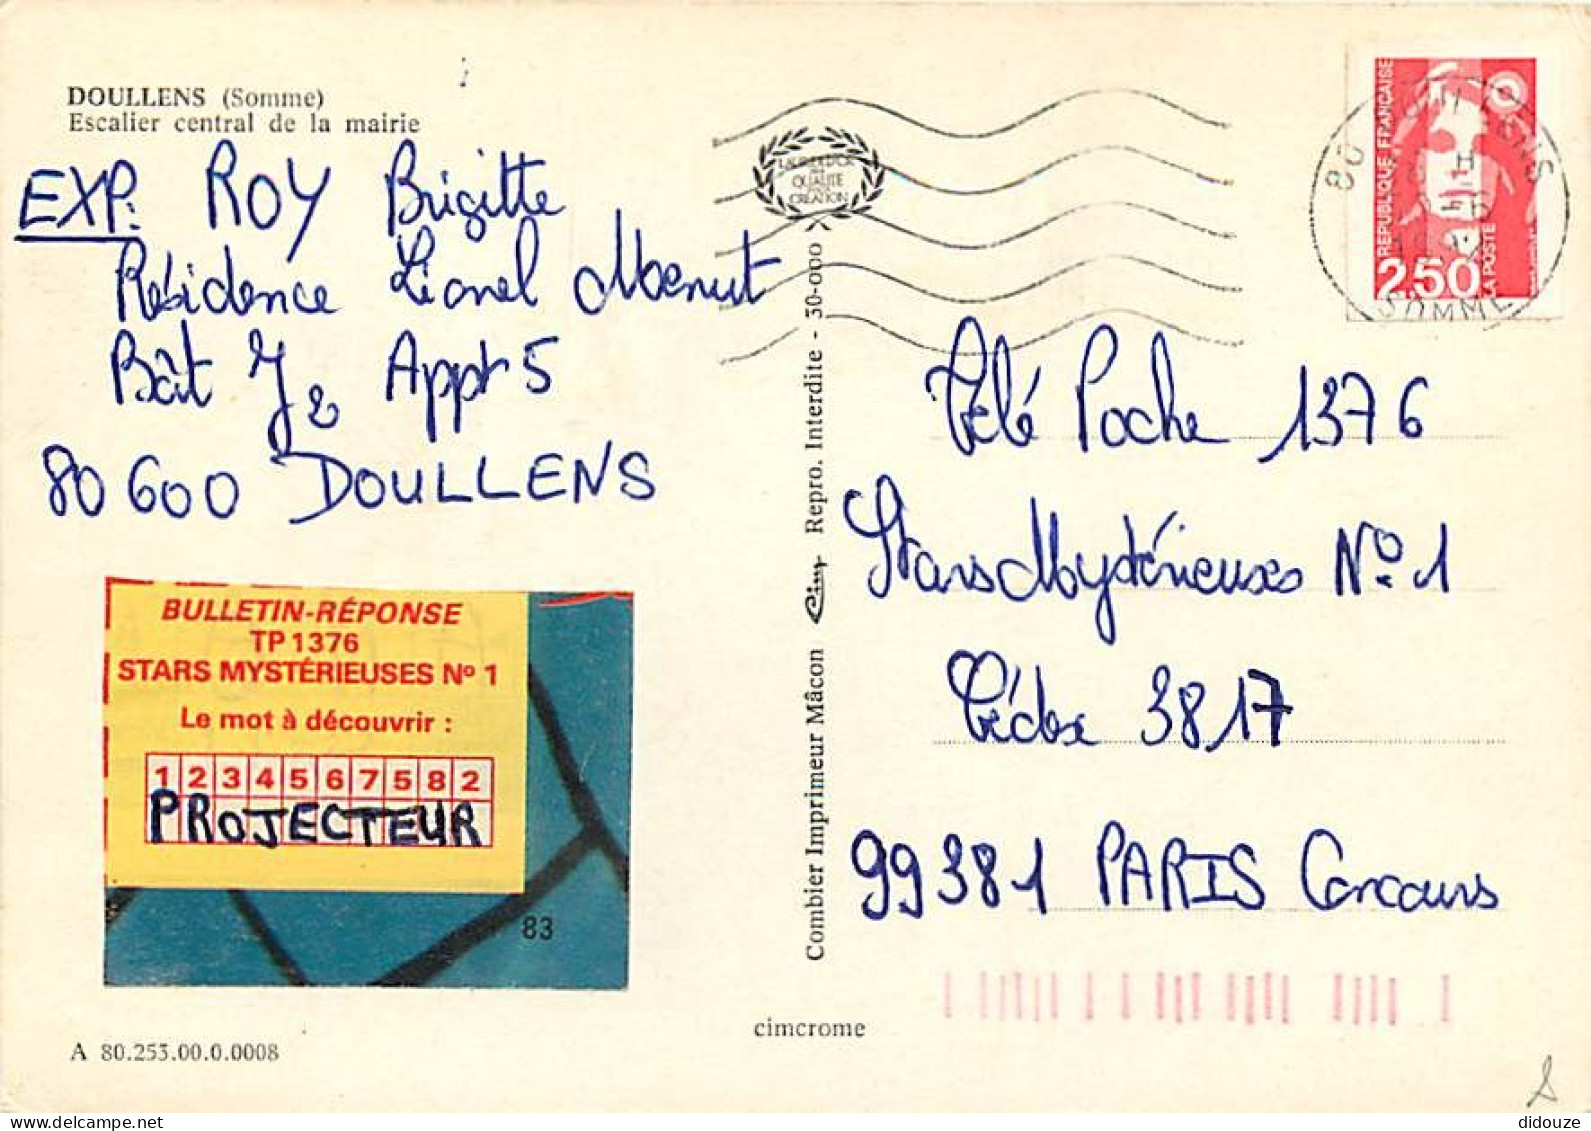 DOULLENS (Somme)
Escalier central de la mairie
EXP: ROY Brigitte
Résidence Lionel Menut
Bât J2 Appt 5
80600 DOULLENS
BULLETIN-RÉPONSE
TP 1376
STARS MYSTÉRIEUSES Nº 1
Le mot à découvrir :
1 2 3 4 5 6 7 5 8 2
PROJECTEUR
83
A 80.253.00.0.0008
QUALITÉ
CRÉATION
Combier Imprimeur Mâcon Cim Repro. Interdite - 30-000 X
cimcrome
80
SOMME
REPUBLIQUE FRANÇAISE
2,50
LA POSTE
Télé Poche 1376
Stars Mystérieuses Nº 1
Cédex 3817
99381 PARIS Concours
didouze